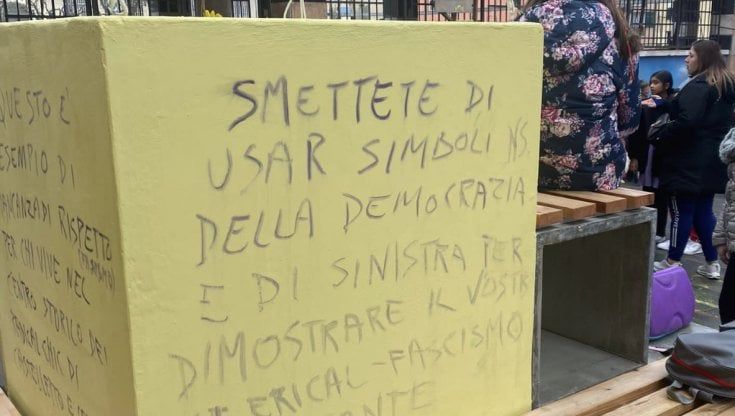 QUESTO È
ESEMPIO DI
MANCANZA DI RISPETTO
PER CHI VIVE NEL
CENTRO STORICO DEI
RADICAL CHIC DI
CASTELLETTO E
SMETTETE DI
USAR SIMBOLI NS.
DELLA DEMOCRAZIA
E DI SINISTRA PER
DIMOSTRARE IL VOSTR
ERICAL-FASCISMO
ANTE